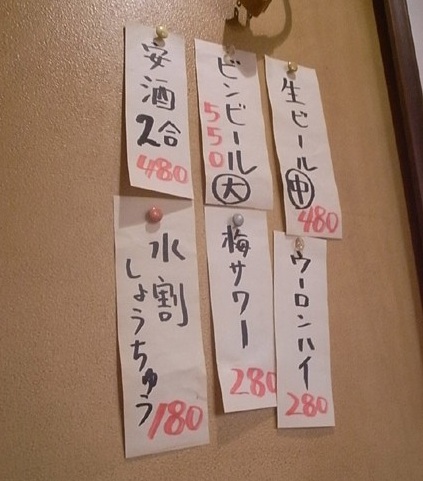 生ビール 中
480
ビンビール 大
550
安酒
2合
480
ウーロンハイ
280
梅サワー
280
水割
しょうちゅう
180